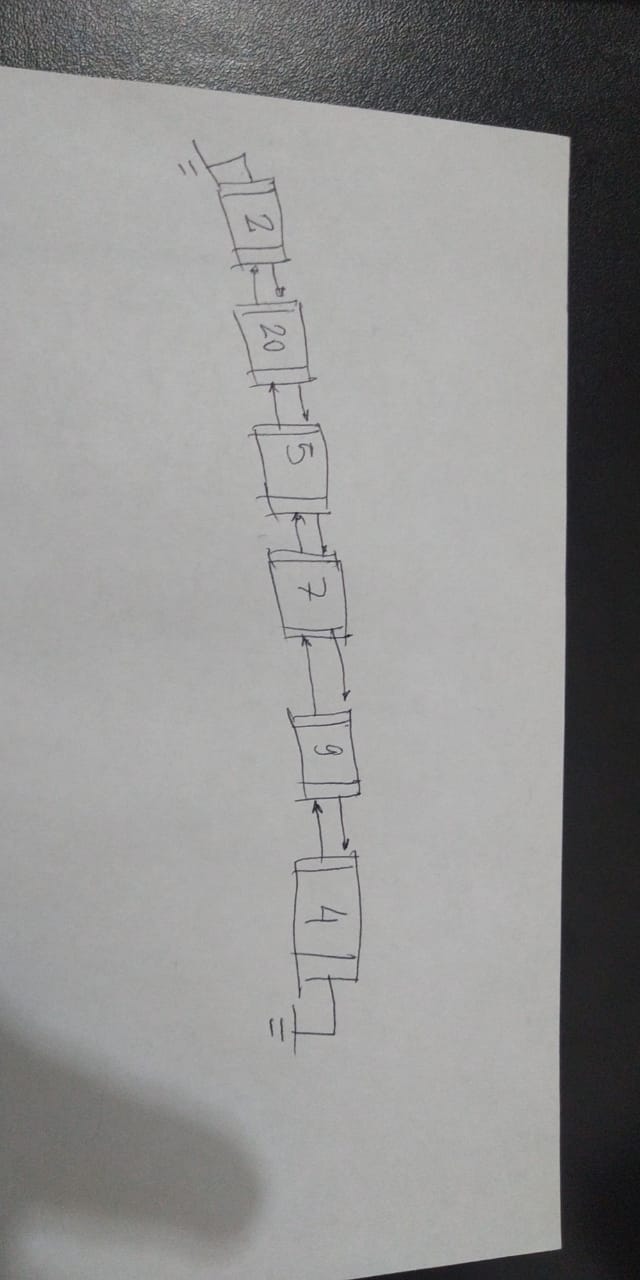 2 20 5 7 9 4